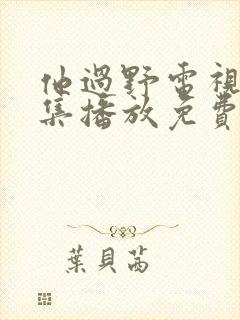 他過野電視
集播放免費
葉貝茜